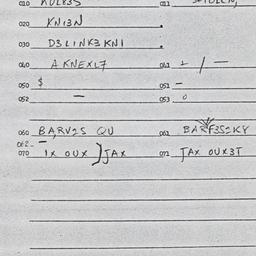 010 011
020 KNI3N
030 D3LINK3KNI
040 A KNEXL7 041 ± / —
050 $ 051 —
052 — 053 0
060 BARV2S QU 061 BARF3S2KY
062 —
070 IX OUX ) JAX 071 TAX OUX3T